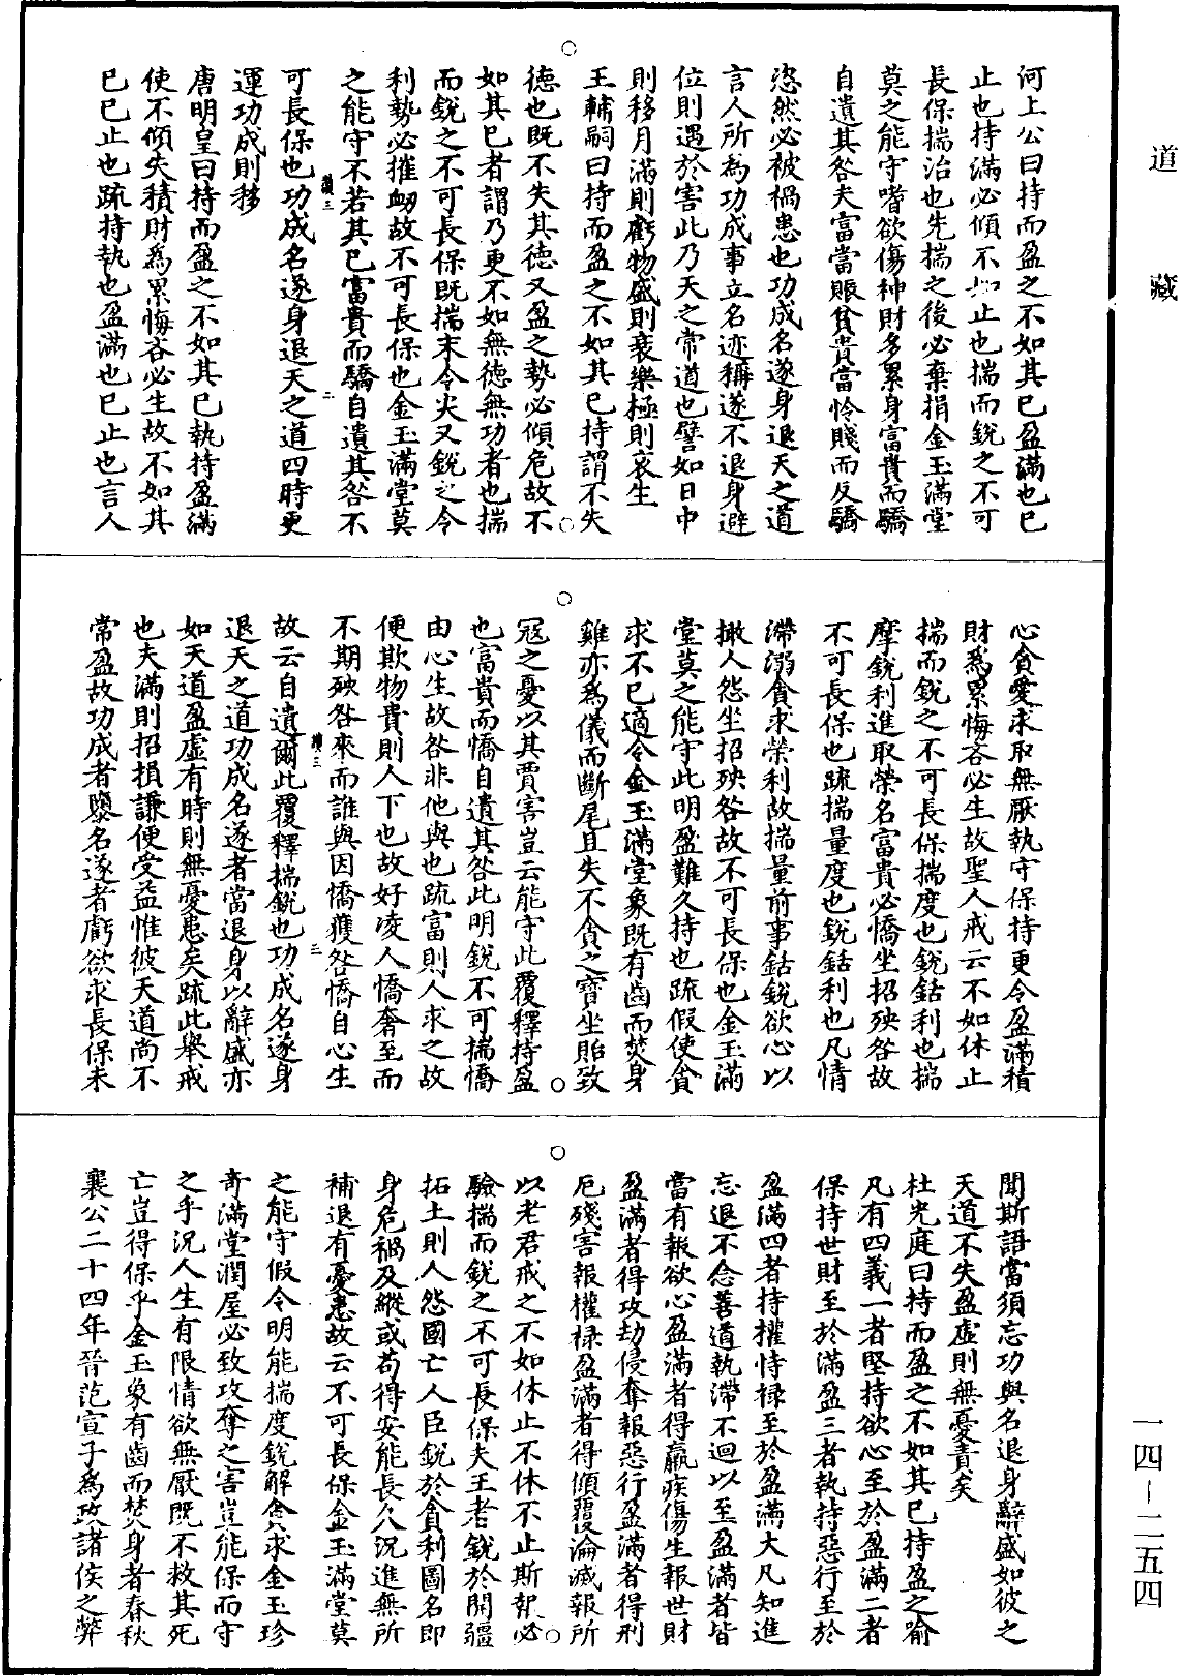 道藏
何上公曰持而盈之不如其已盈滿也已
止也持滿必傾不如止也揣而銳之不可
長保揣治也先揣之後必棄捐金玉滿堂
莫之能守嗜欲傷神財多累身富貴而驕
自遺其咎夫富當賑貧貴當怜賤而反驕
恣然必被禍患也功成名遂身退天之道
言人所為功成事立名迹稱遂不退身避
位則遇於害此乃天之常道也譬如日中
則移月滿則虧物盛則衰樂極則哀生
王輔嗣曰持而盈之不如其已持謂不失
德也既不失其德又盈之勢必傾危故不
如其已者謂乃更不如無德無功者也揣
而銳之不可長保既揣末令尖又銳之令
利勢必摧衂故不可長保也金玉滿堂莫
之能守不若其已富貴而驕自遺其咎不
讃三
二
可長保也功成名遂身退天之道四時更
運功成則移
唐明皇曰持而盈之不如其已執持盈滿
使不傾失積財為累悔吝必生故不如其
已已止也疏持執也盈滿也已止也言人
心貪愛求取無厭執守保持更令盈滿積
財為累悔吝必生故聖人戒云不如休止
揣而銳之不可長保揣度也銳銛利也揣
摩銳利進取榮名富貴必憍坐招殃咎故
不可長保也疏揣量度也銳銛利也凡情
滯溺貪求榮利故揣量前事銛銳欲心以
撖人怨坐招殃咎故不可長保也金玉滿
堂莫之能守此明盈難久持也疏假使貪
求不已適令金玉滿堂象既有齒而焚身
雞亦為儀而斷尾且失不貪之寶坐貽致
寇之憂以其賈害豈云能守此覆釋持盈
也富貴而憍自遺其咎此明銳不可揣憍
由心生故咎非他與也疏富則人求之故
便欺物貴則人下也故好凌人憍奢至而
不期殃咎來而誰與因憍獲咎憍自心生
讃三
三
故云自遺爾此覆釋揣銳也功成名遂身
退天之道功成名遂者當退身以辭盛亦
如天道盈虛有時則無憂患矣疏此舉戒
也夫滿則招損謙便受益惟彼天道尚不
常盈故功成者隳名遂者虧欲求長保未
聞斯語當須忘功與名退身辭盛如彼之
天道不失盈虛則無憂責矣
杜光庭曰持而盈之不如其已持盈之喻
凡有四義一者堅持欲心至於盈滿二者
保持世財至於滿盈三者執持惡行至於
盈滿四者持權恃祿至於盈滿大凡知進
忘退不念善道執滯不迴以至盈滿者皆
當有報欲心盈滿者得羸疾傷生報世財
盈滿者得攻劫侵奪報惡行盈滿者得刑
厄殘害報權祿盈滿者得傾覆淪滅報所
以老君戒之不如休止不休不止斯報必
驗揣而銳之不可長保夫王者銳於開疆
拓土則人怨國亡人臣銳於貪利圖名即
身危禍及縱或苟得安能長久況進無所
補退有憂患故云不可長保金玉滿堂莫
之能守假令明能揣度銳解貪求金玉珍
奇滿堂潤屋必致攻奪之害豈能保而守
之乎況人生有限情欲無厭既不救其死
亡豈得保乎金玉象有齒而焚身者春秋
襄公二十四年晉范宣子為政諸侯之弊
一四－二五四